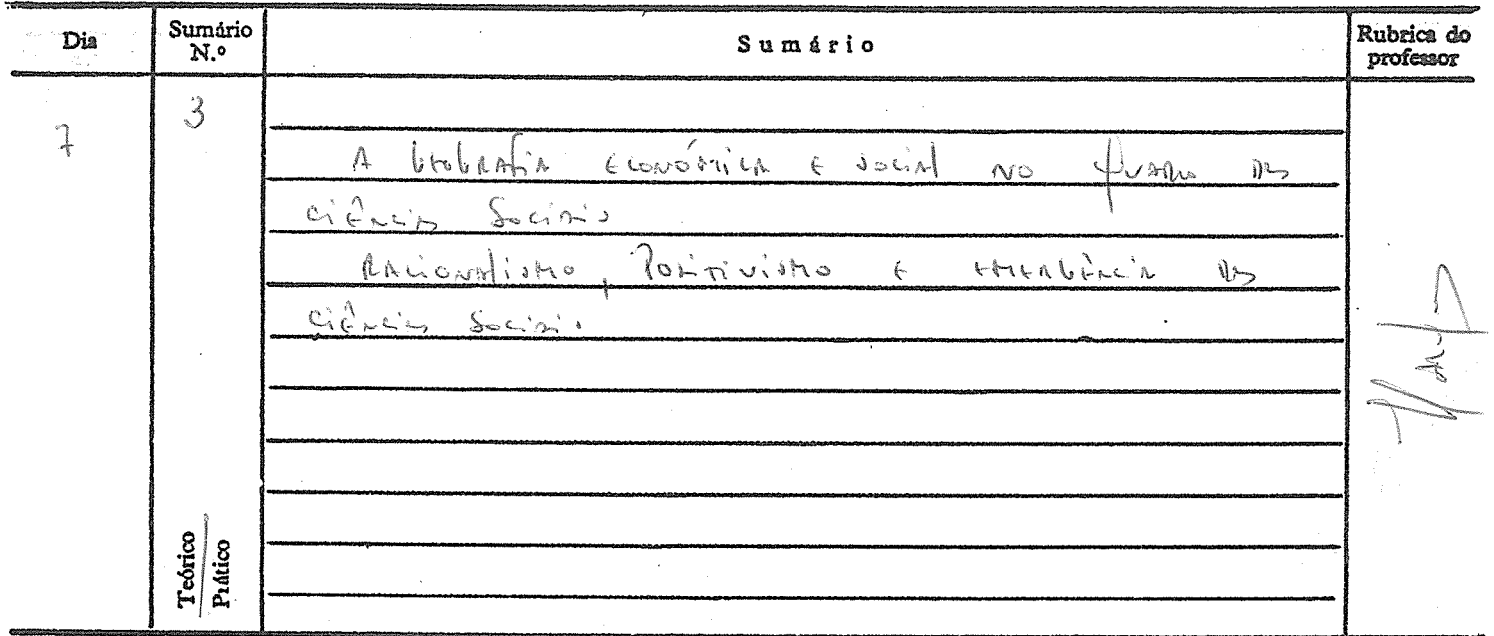 Dia
Sumário N.º
Sumário
Rubrica do professor
7
3
A Geografia Económica e Social no quadro das
ciências sociais
Racionalismo, Positivismo e emergência das
ciências sociais.
Teórico
Prático